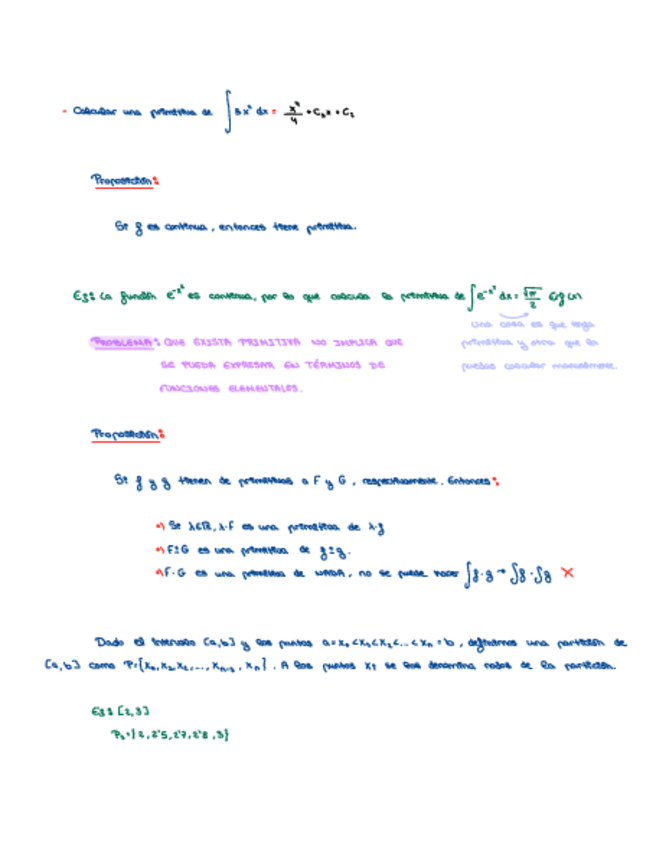 - Calcular una primitiva de ∫ 5x⁴ dx = x⁴/4 + C₁x + C₂
Proposición:
Si f es continua, entonces tiene primitiva.
Ej: La función e^(-x²) es continua, por lo que calcula la primitiva de ∫ e^(-x²) dx = √π/2 Erf(x)
Una cosa es que tenga
PROBLEMA: QUE EXISTA PRIMITIVA NO IMPLICA QUE
primitiva y otra que la
SE PUEDA EXPRESAR EN TÉRMINOS DE
puedas calcular manualmente.
FUNCIONES ELEMENTALES.
Proposición:
Si f y g tienen de primitivas a F y G, respectivamente. Entonces:
•) Si λ∈ℝ, λ·F es una primitiva de λ·f
•) F±G es una primitiva de f±g.
•) F·G es una primitiva de NADA, no se puede hacer ∫f·g → ∫f·∫g ✗
Dado el intervalo [a,b] y los puntos a=x₀<x₁<x₂<...<xₙ=b, definimos una partición de
[a,b] como P={x₀,x₁,x₂,...,xₙ₋₁,xₙ}. A los puntos xi se los denomina nodos de la partición.
Ej: [2,3]
P₁={2, 2'5, 2'7, 2'8, 3}